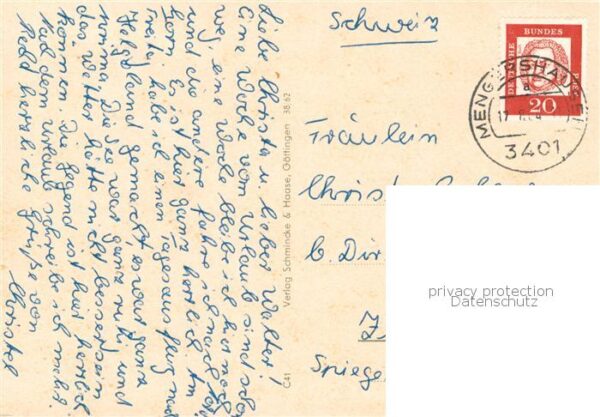 Liebe Christa u. lieber Walter!
Eine Woche vom Urlaub sind schon
weg, eine Woche bleibe ich hier noch
und die andere fahre ich nach
Born. Es ist hier ganz herrlich. Am
Freitag habe ich einen Tagesausflug nach
Helgoland gemacht, es war ganz
prima. Die See war ganz ruhig und
das Wetter hätte nicht besser sein
können. Die Gegend ist hier herrlich.
Nach dem Urlaub schreibe ich mehr.
Recht herzliche Grüße von
Christel
C41 Verlag Schmincke & Haase, Göttingen 38.62
Schweiz
DEUTSCHE BUNDES POST
20
MENG SHAUSEN
a
17
3401
Fräulein
Christ
b. Dir
Z
Spiege
privacy protection
Datenschutz